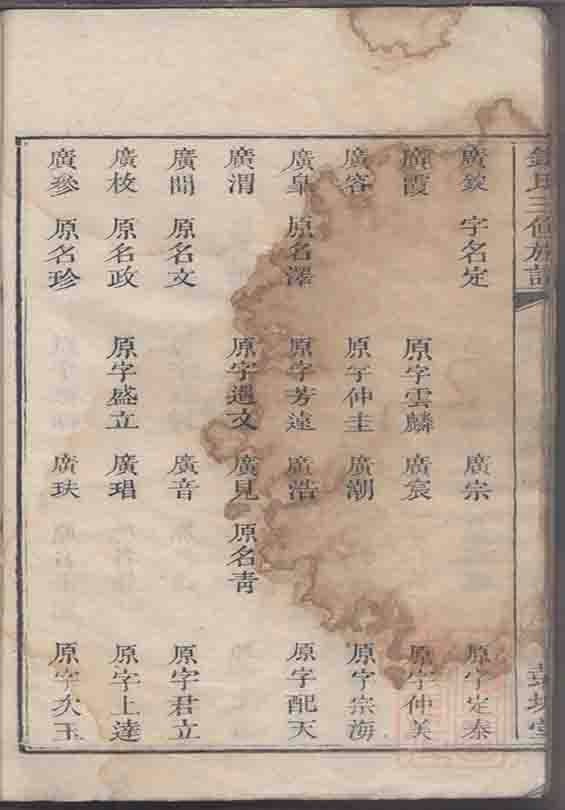 氏三修族譜
廣錠 字名定 廣宗 原字定泰
廣霞 原字雲麟 廣宸 原字仲美
廣容 原字仲圭 廣潮 原字宗海
廣皐 原名澤 原字芳遠 廣浩 原字配天
廣渭 原字遇文 廣見 原名青
廣聞 原名文 廣音 原字君立
廣枚 原名政 原字盛立 廣琩 原字上達
廣參 原名珍 廣玞 原字次玉